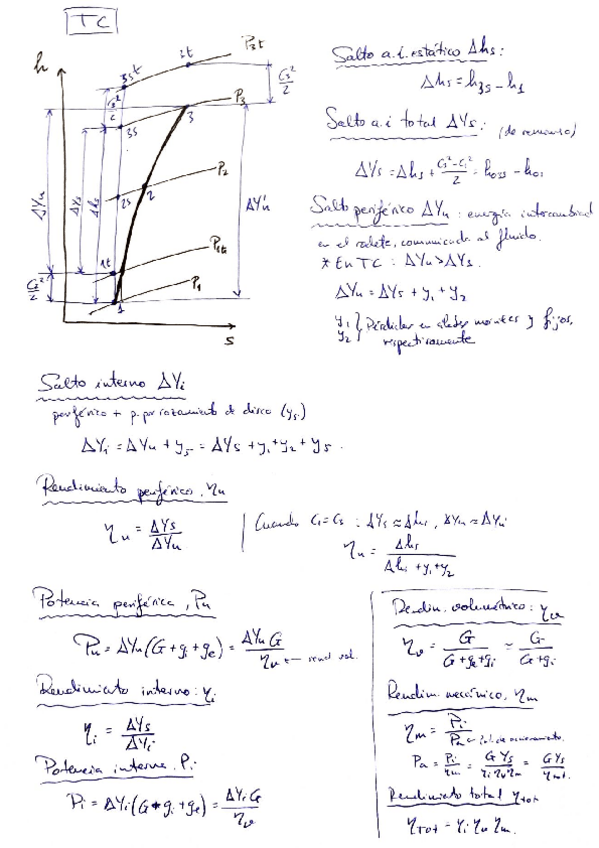 TC
h
P3t
3st
3t
C3²/2
C3²/2
P3
3s
3
ΔYu
ΔYs
Δhs
P2
2s
2
ΔYu
P1t
1t
C1²/2
P1
1
s
Salto a.i. estático Δhs:
Δhs = h3s - h1
Salto a.i total ΔYs: (de remanso)
ΔYs = Δhs + (C3² - C1²)/2 = h03s - h01
Salto periférico ΔYu: energía intercambiad
en el rodete, comunicada al fluido.
* En TC: ΔYu > ΔYs.
ΔYu = ΔYs + y1 + y2
y1
y2 } Pérdidas en álabes móviles y fijos,
respectivamente
Salto interno ΔYi
periférico + p. por rozamiento de disco (y5)
ΔYi = ΔYu + y5 = ΔYs + y1 + y2 + y5.
Rendimiento periférico, ηu
ηu = ΔYs/ΔYu
Cuando C1 = C3: ΔYs ≈ Δhs,
ηu = Δhs/(Δhs + y1 + y2)
Potencia periférica, Pu
Pu = ΔYu(G + gi + ge) = ΔYu G/ηv ← rend vol.
Rendimiento interno: ηi
ηi = ΔYs/ΔYi
Potencia interna. Pi
Pi = ΔYi(G + gi + ge) = ΔYi G/ηv
Rendim. volumétrico: ηv
ηv = G/(G + ge + gi) ≈ G/(G + gi)
Rendim. mecánico, ηm
ηm = Pi/Pa ← pot. de accionamiento.
Pa = Pi/ηm = G Ys/(ηi ηv ηm) = G Ys/ηtot.
Rendimiento total ηtot
ηTot = ηi ηv ηm.